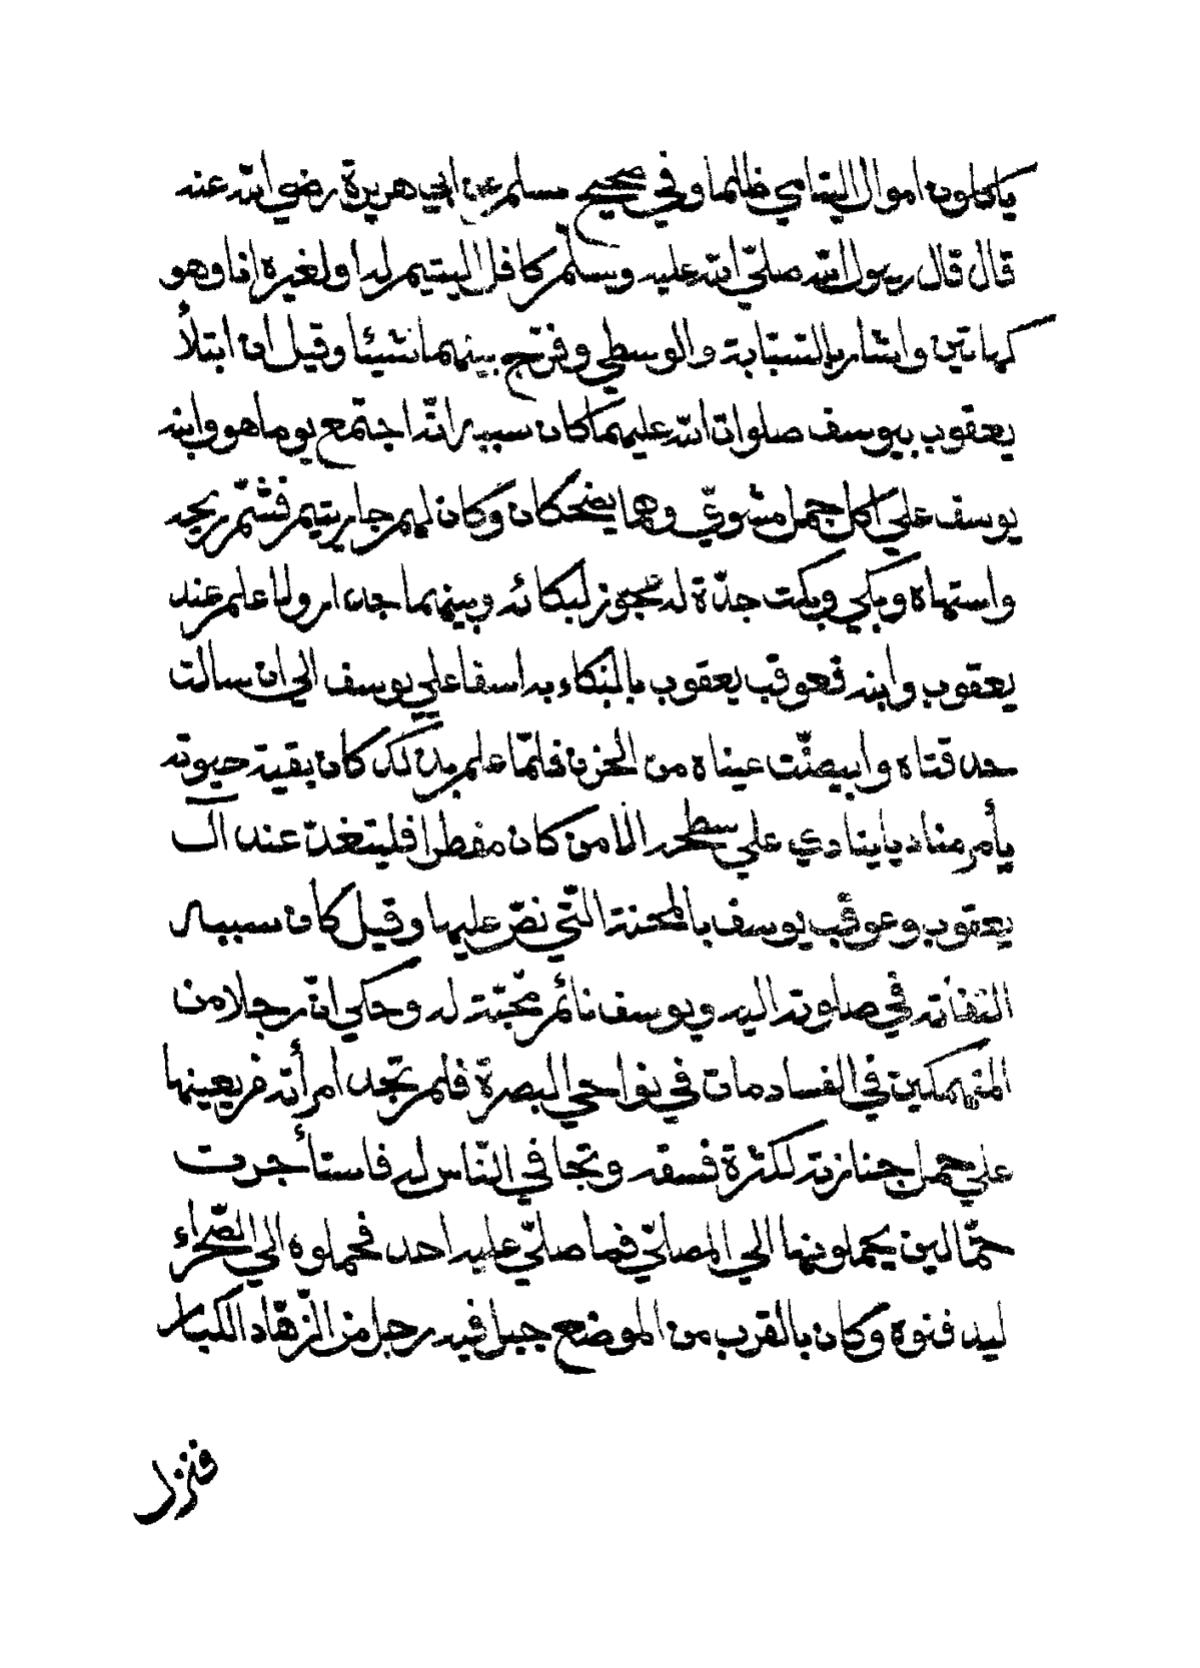 ياكلون اموال اليتامي ظلما وفي صحيح مسلم عن ابي هريرة رضي الله عنه
قال قال رسول الله صلي الله عليه وسلم كافل اليتيم له او لغيره انا وهو
كهاتين واشار بالسبّابة والوسطي وفرّج بينهما شيئا وقيل ان ابتلأ
يعقوب بيوسف صلوات الله عليهما كان سببه انّه اجتمع يوما هو وابنه
يوسف علي اكل جمل مشويّ وهما يضحكان وكان لهم جار يتيم فشمّ ريحه
واشتهاه وبكي وبكت جدّة له عجوز لبكائه وبينهما جدار ولا علم عند
يعقوب وابنه فعوقب يعقوب بالبكاء به اسفا علي يوسف الي ان سالت
حدقتاه وابيضّت عيناه من الحزن فلمّا علم بذلك كان بقية حيوته
يأمر مناديا ينادي علي سطحه الا من كان مفطرا فليتغدّ عند آل
يعقوب وعوقب يوسف بالمحنة التّي نصّ عليها وقيل كان سببه
التفاته في صلوته اليه ويوسف نائم محبّة له وحكي انّ رجلا من
المنهمكين في الفساد مات في نواحي البصرة فلم تجد امرأته من يعينها
علي حمل جنازته لكثرة فسقه وتجافي النّاس له فاستأجرت
حمّالين يحملونها الي المصلّي فما صلّي عليه احد فحملوه الي الصّحراء
ليدفنوه وكان بالقرب من الموضع جبل فيه رجل من الزّهّاد الكبار
فنزل